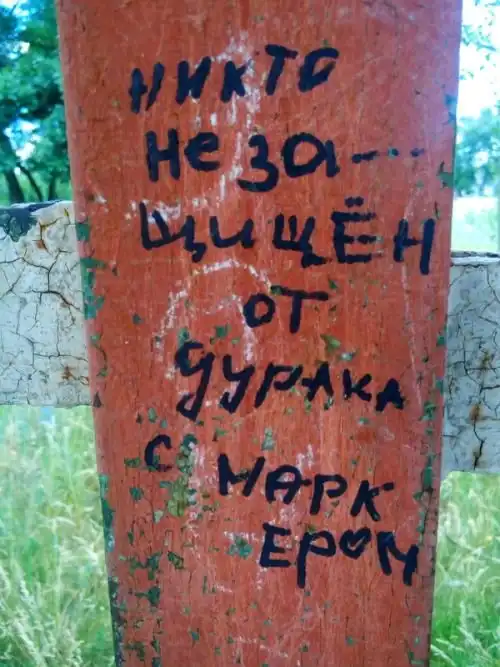 никто
не за-
щищён
от
дурака
с марк
ером